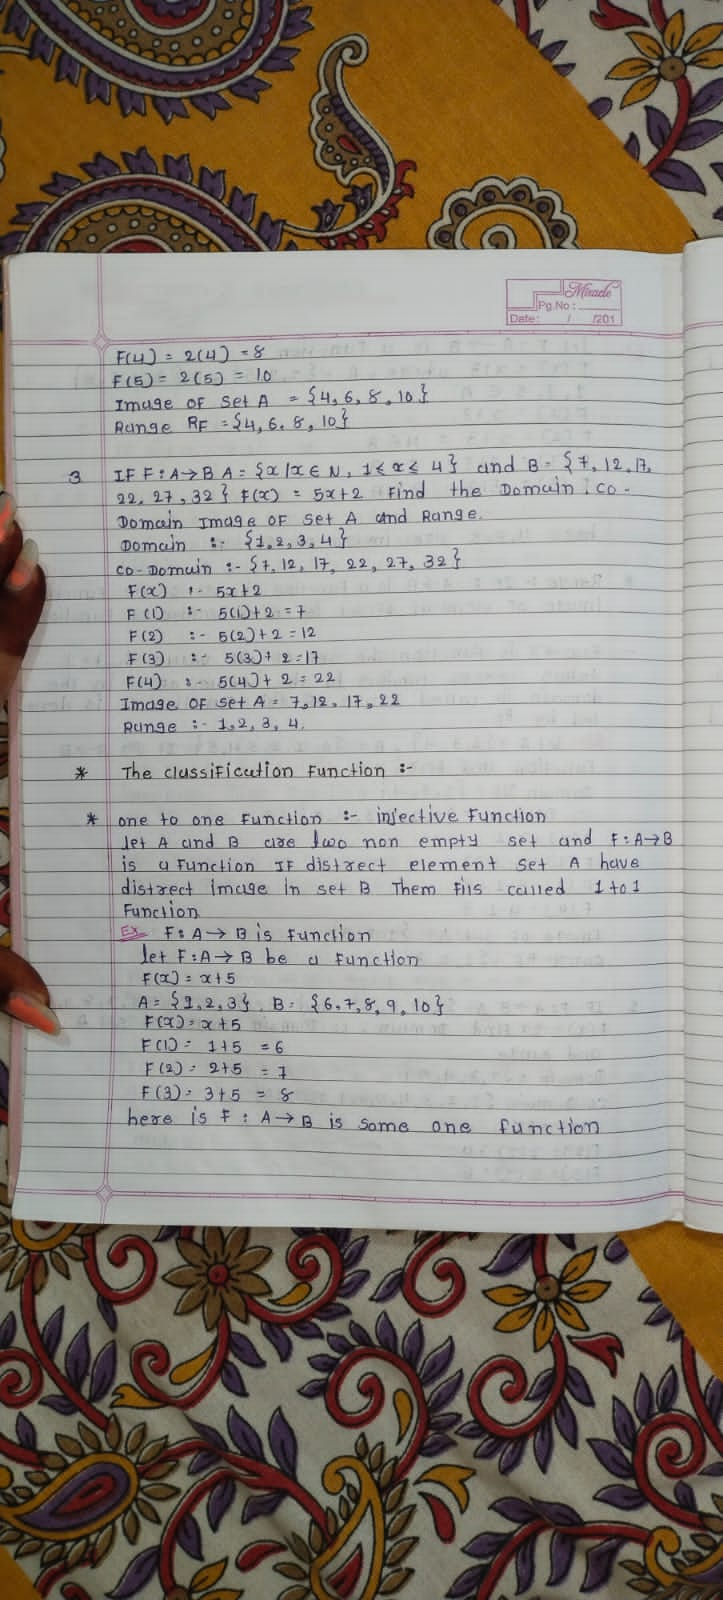 Miracle
Pg.No :
Date: / /201
F(4) = 2(4) = 8
F(5) = 2(5) = 10
Image OF Set A = {4, 6, 8, 10}
Range RF = {4, 6, 8, 10}
3 IF F : A → B A = {x / x ∈ N, 1 ≤ x ≤ 4} and B = {7, 12, 17,
22, 27, 32} F(x) = 5x+2 Find the Domain, co-
Domain Image OF Set A and Range.
Domain :- {1, 2, 3, 4}
co-Domain :- {7, 12, 17, 22, 27, 32}
F(x) :- 5x+2
F (1) :- 5(1)+2 = 7
F(2) :- 5(2)+2 = 12
F(3) :- 5(3)+ 2 = 17
F(4) :- 5(4)+ 2 = 22
Image OF Set A = 7, 12, 17, 22
Range :- 1, 2, 3, 4.
* The classification Function :-
* one to one Function :- injective Function
let A and B are two non empty set and F: A→B
is a Function IF distrect element set A have
distrect image in set B Them F is called 1 to 1
Function
Ex F: A → B is function
let F: A → B be a Function
F(x) = x+5
A = {1, 2, 3}, B = {6, 7, 8, 9, 10}
F(x) = x+5
F(1) = 1+5 = 6
F(2) = 2+5 = 7
F(3) = 3+5 = 8
here is F : A → B is some one function